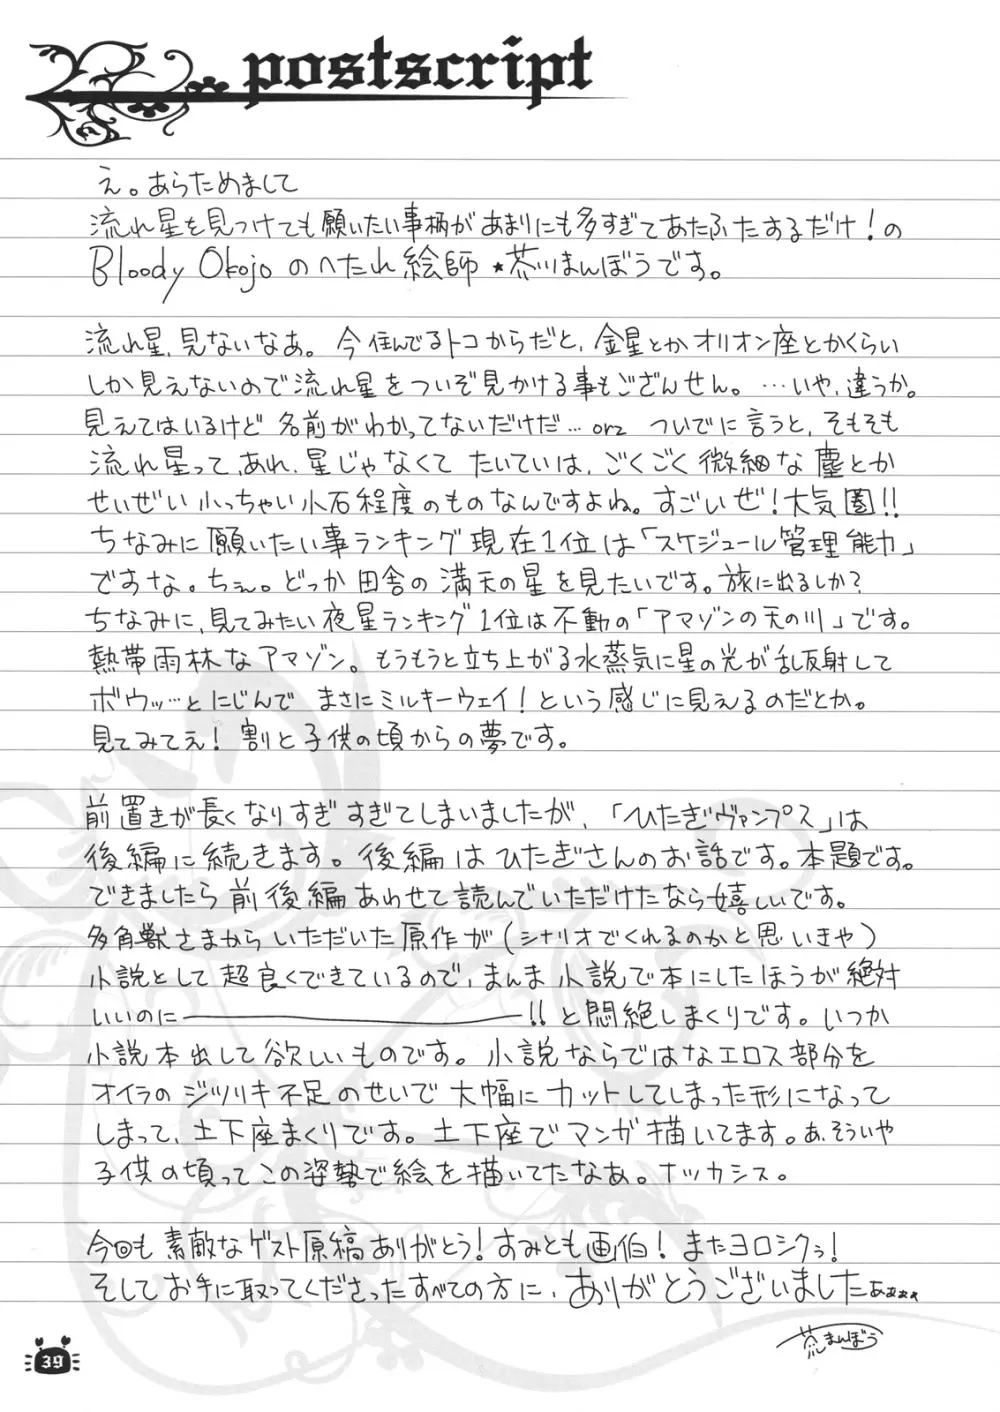 postscript
え。あらためまして
流れ星を見つけても願いたい事柄があまりにも多すぎてあたふたするだけ！の
Bloody Okojo のへたれ絵師★茶川まんぼうです。
流れ星、見ないなあ。今住んでるトコからだと、金星とかオリオン座とかくらい
しか見えないので流れ星をついぞ見かける事もござんせん。…いや、違うか。
見えてはいるけど名前がわかってないだけだ…orz ついでに言うと、そもそも
流れ星って、あれ、星じゃなくてたいていは、ごくごく微細な塵とか
せいぜい小っちゃい小石程度のものなんですよね。すごいぜ！大気圏!!
ちなみに願いたい事ランキング現在1位は「スケジュール管理能力」
ですな。ちぇ。どっか田舎の満天の星を見たいです。旅に出るしか？
ちなみに、見てみたい夜星ランキング1位は不動の「アマゾンの天の川」です。
熱帯雨林なアマゾン。もうもうと立ち上がる水蒸気に星の光が乱反射して
ボウッ…とにじんで まさにミルキーウェイ！という感じに見えるのだとか。
見てみてえ！割と子供の頃からの夢です。
前置きが長くなりすぎすぎてしまいましたが、「ひたぎヴァンプス」は
後編に続きます。後編はひたぎさんのお話です。本題です。
できましたら前後編あわせて読んでいただけたなら嬉しいです。
多角獣さまからいただいた原作が(シナリオでくれるのかと思いきや)
小説として超良くできているので、まんま小説で本にしたほうが絶対
いいのに――――――!!と悶絶しまくりです。いつか
小説本出して欲しいものです。小説ならではなエロス部分を
オイラのジツリキ不足のせいで大幅にカットしてしまった形になって
しまって、土下座まくりです。土下座でマンガ描いてます。あ、そういや
子供の頃ってこの姿勢で絵を描いてたなあ。ナツカシス。
今回も素敵なゲスト原稿ありがとう！すみとも画伯！またヨロシクぅ！
そしてお手に取ってくださったすべての方に、ありがとうございましたぁぁぁぁ
まんぼう
39